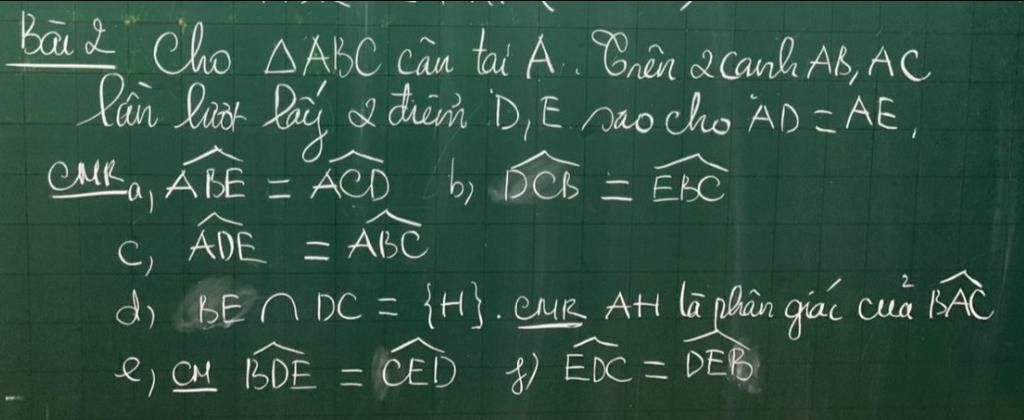 Bài 2 Cho △ABC cân tại A. Trên 2 cạnh AB, AC
lần lượt lấy 2 điểm D, E sao cho AD = AE,
CMR a, \widehat{ABE} = \widehat{ACD} b, \widehat{DCB} = \widehat{EBC}
c, \widehat{ADE} = \widehat{ABC}
d, BE ∩ DC = {H}. CMR AH là phân giác của \widehat{BAC}
e, CM \widehat{BDE} = \widehat{CED} f) \widehat{EDC} = \widehat{DEB}